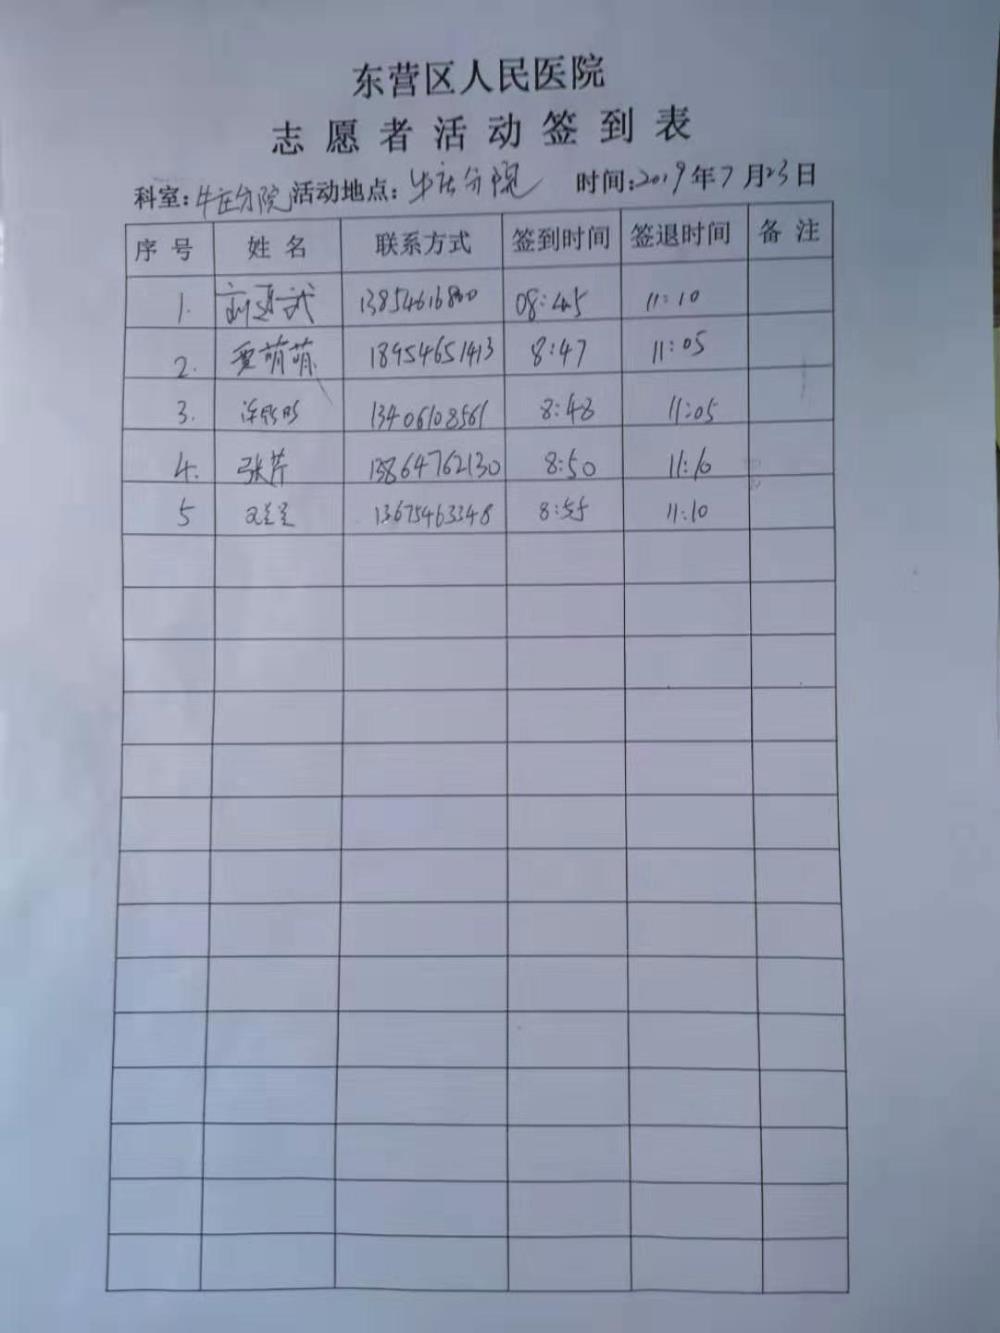 东营区人民医院
志愿者活动签到表
科室:牛庄分院 活动地点:牛庄分院 时间:2019年7月23日
序号 姓名 联系方式 签到时间 签退时间 备注
1. 08:45 11:10
2. 贾萌萌 18954651413 8:47 11:05
3. 13406108561 8:48 11:05
4. 张芹 13864762130 8:50 11:10
5 13675463348 8:55 11:10